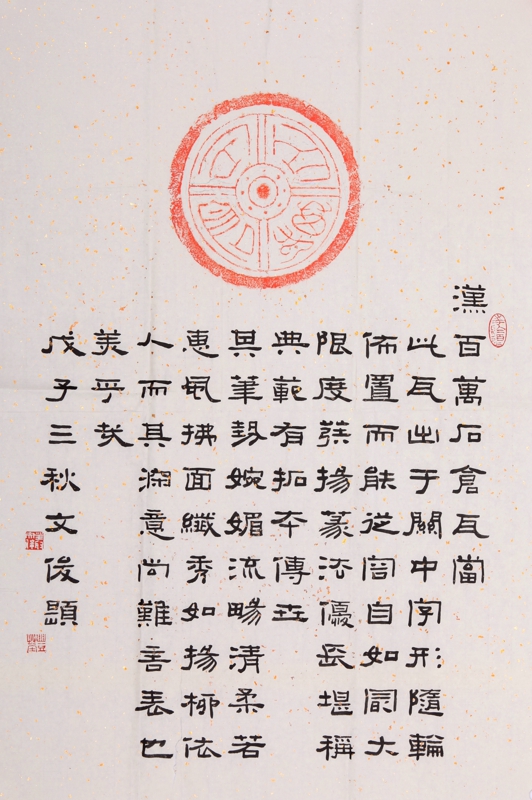 漢百萬石倉瓦當
此瓦出于關中字形隨輪
佈置而能從容自如冣大
限度發揚篆法優長堪稱
典範有拓本傳世
其筆勢婉媚流暢清柔若
惠風拂面纖秀如揚柳依
人而其深意尚難言表也
美乎哉
戊子三秋文俊題